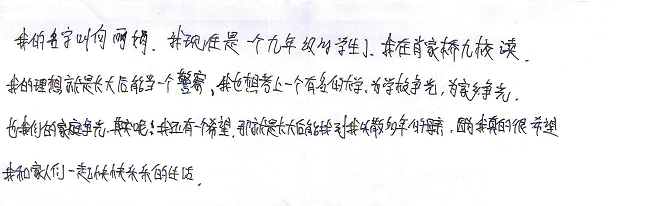 我的名字叫何丽娟. 我现在是一个九年级的学生了. 我在肖家桥九校读.
我的理想就是长大后能当一个警察, 我也想考上一个有名的大学, 为学校争光, 为家乡争光,
也我们的家庭争光. 其实呢! 我还有一个希望. 那就是长大后能找到我失散多年的母亲, 因为我真的很希望
我和家人们一起快快乐乐的生活.